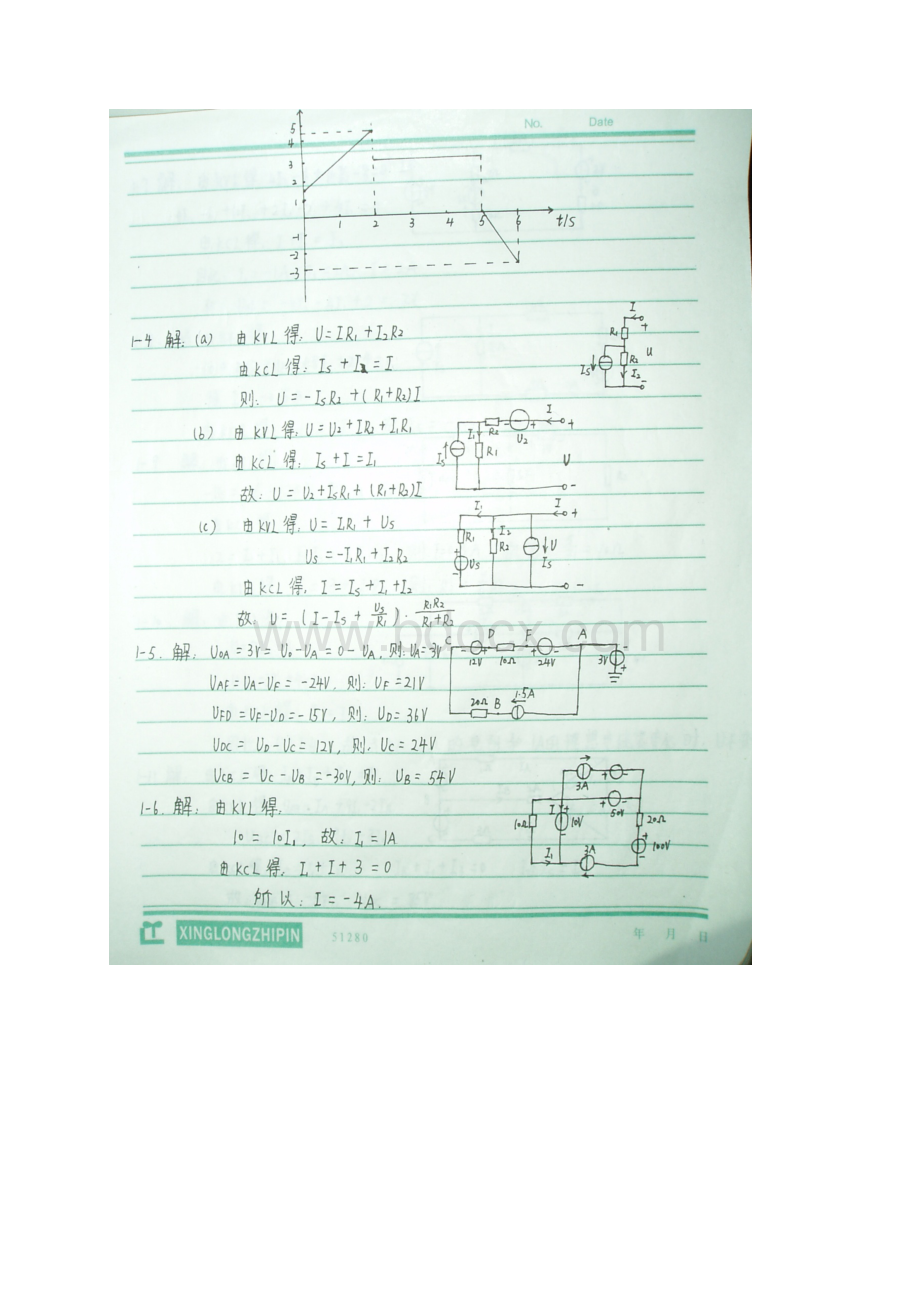 No. Date
5
4
3
2
1
1 2 3 4 5 6 t/s
-1
-2
-3
1-4 解: (a) 由KVL得: U=IR₁+I₂R₂
由KCL得: Is+I₂=I
则: U=-IsR₂+(R₁+R₂)I
I
R₁ +
U
Is R₂
I₂ -
(b) 由KVL得, U=U₂+IR₂+I₁R₁
由KCL得: Is+I=I₁
故: U=U₂+IsR₁+(R₁+R₂)I
I
R₂ - + +
I₁ U₂
Is R₁
U
-
(c) 由KVL得, U=I₁R₁+Us
Us=-I₁R₁+I₂R₂
由KCL得, I=Is+I₁+I₂
故: U=(I-Is+Us/R₁)·R₁R₂/(R₁+R₂)
I₁ I
+
R₁ I₂
R₂ U
+ Us Is
- -
www.bdocx.com
1-5. 解: U₀A=3V=U₀-UA=0-UA, 则:UA=3V
UAF=UA-UF=-24V. 则: UF=21V
UFD=UF-UD=-15V, 则: UD=36V
UDC=UD-UC=12V, 则, UC=24V
UCB=UC-UB=-30V, 则: UB=54V
C D F A
- + + -
12V 10Ω 24V 3V
20Ω B 1.5A
1-6. 解: 由KVL得,
10=10I₁, 故: I₁=1A
由KCL得, I₁+I+3=0
所以: I=-4A.
+ -
3A
+ -
I + 50V
10Ω 10V 20Ω
-
+
100V
I₁ 3A -
XINGLONGZHIPIN 51280 年 月 日